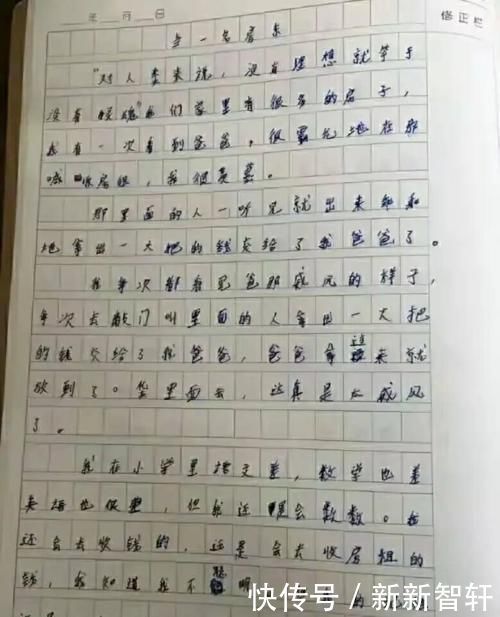 年 月 日
修正栏
当一名房东
"对人类来说，没有理想就等于
没有灵魂"我们家里有很多的房子，
我有一次看到爸爸，很霸气地在那
喊收房租，我很羡慕。
那里面的人一听见就出来
地拿出一大把的钱交给了我爸爸了。
我每次都看见爸那威风的样子，
每次去敲门叫里面的人拿出一大把
的钱交给了我爸爸，爸爸拿过来就
放到了包里面去，这真是太威风
了。
我在小学里语文差，数学也差
英语也很差，但我还是会数数。我
还会去收钱的，还是会去收房租的
钱，我知道我不聪明
快传号／新新智轩